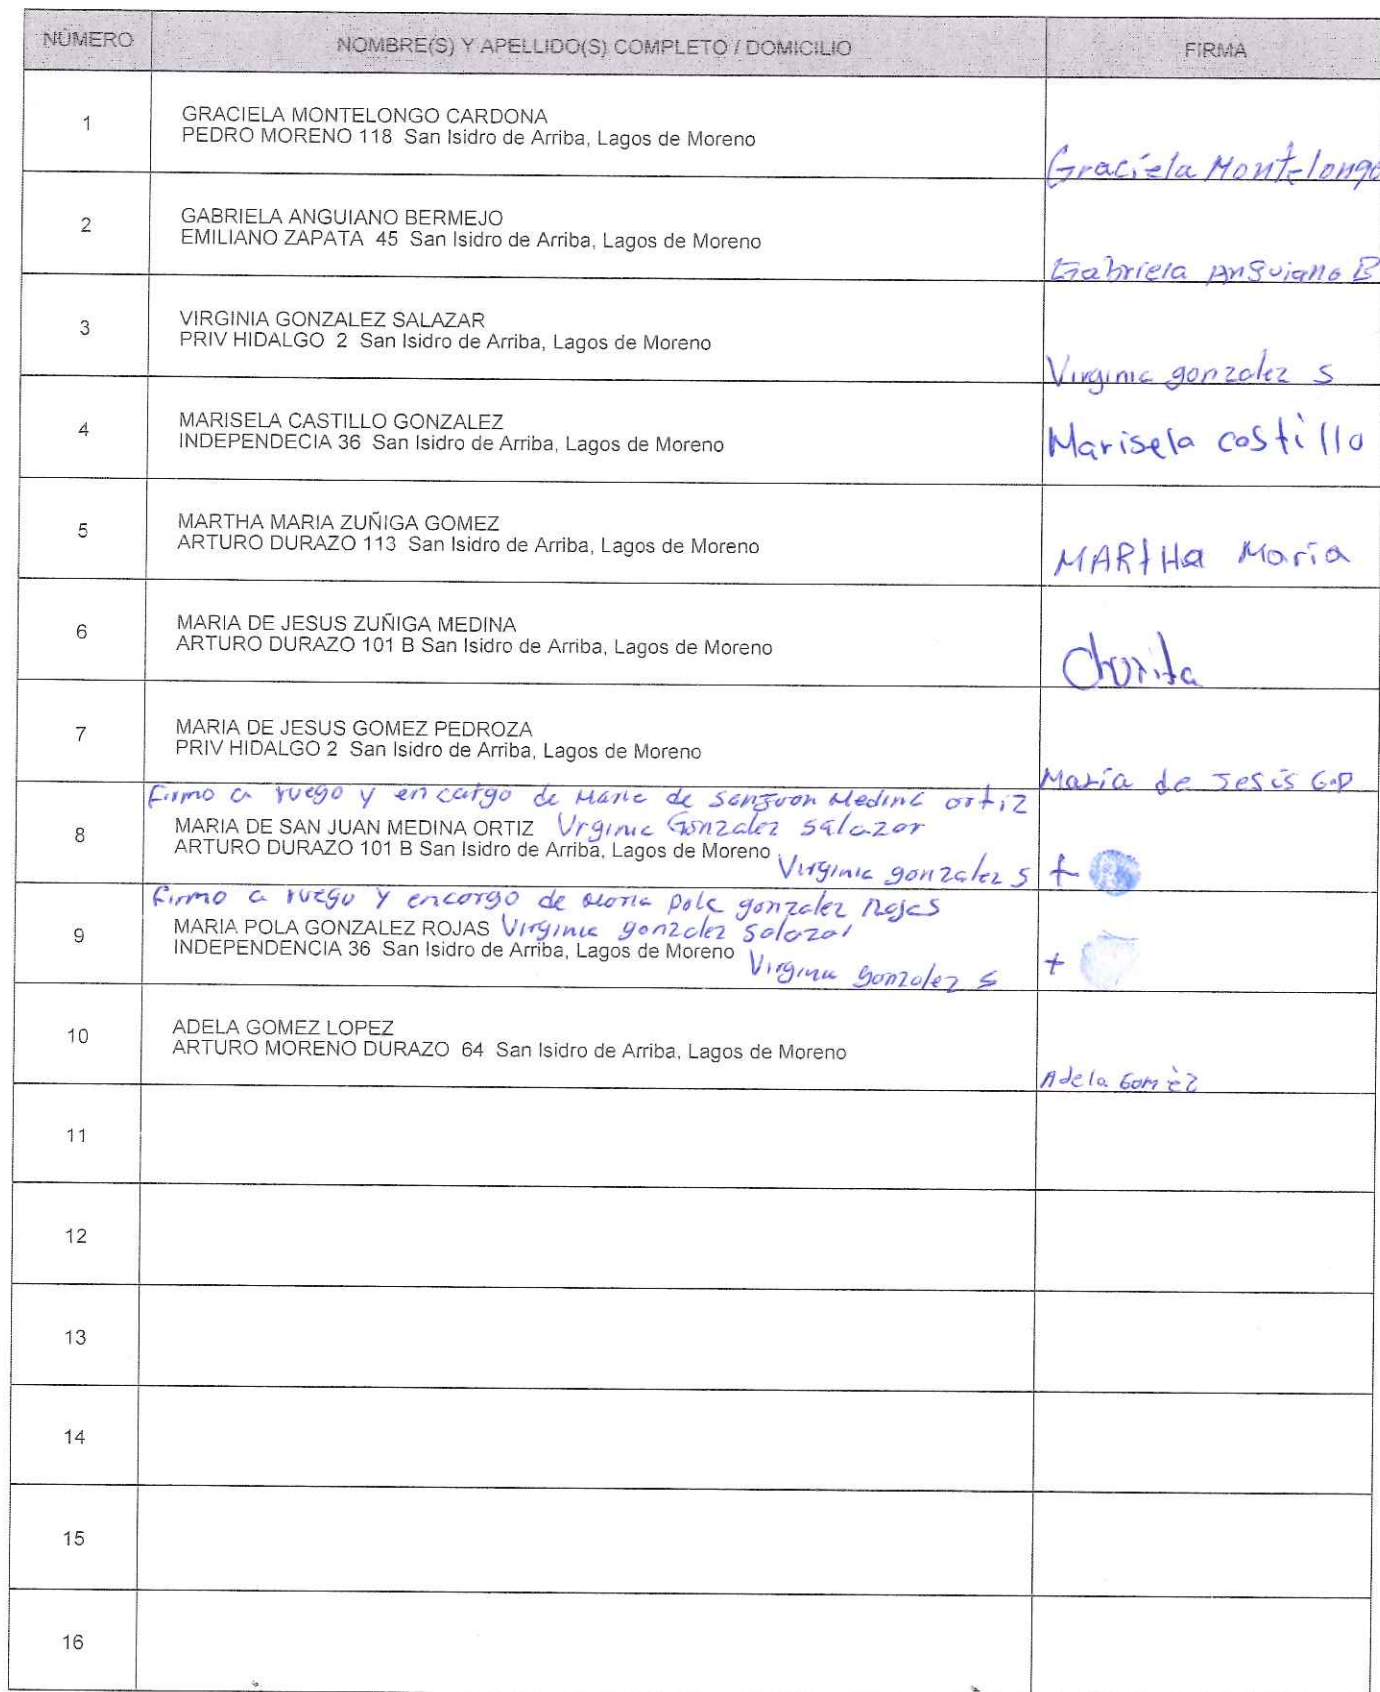 NÚMERO NOMBRE(S) Y APELLIDO(S) COMPLETO / DOMICILIO FIRMA
1 GRACIELA MONTELONGO CARDONA
PEDRO MORENO 118 San Isidro de Arriba, Lagos de Moreno
Graciela Montelongo
2 GABRIELA ANGUIANO BERMEJO
EMILIANO ZAPATA 45 San Isidro de Arriba, Lagos de Moreno
Gabriela Anguiano B
3 VIRGINIA GONZALEZ SALAZAR
PRIV HIDALGO 2 San Isidro de Arriba, Lagos de Moreno
Virginia gonzalez S
4 MARISELA CASTILLO GONZALEZ
INDEPENDECIA 36 San Isidro de Arriba, Lagos de Moreno
Marisela castillo
5 MARTHA MARIA ZUÑIGA GOMEZ
ARTURO DURAZO 113 San Isidro de Arriba, Lagos de Moreno
MARtHa María
6 MARIA DE JESUS ZUÑIGA MEDINA
ARTURO DURAZO 101 B San Isidro de Arriba, Lagos de Moreno
7 MARIA DE JESUS GOMEZ PEDROZA
PRIV HIDALGO 2 San Isidro de Arriba, Lagos de Moreno
María de Jesús G.P
firmo a ruego y encargo de Maria de Sanjuan Medina ortiz
8 MARIA DE SAN JUAN MEDINA ORTIZ Virginia Gonzalez Salazar
ARTURO DURAZO 101 B San Isidro de Arriba, Lagos de Moreno
Virginia gonzalez S +
firmo a ruego y encargo de Maria Pola gonzalez Rojas
9 MARIA POLA GONZALEZ ROJAS Virginia gonzalez Salazar
INDEPENDENCIA 36 San Isidro de Arriba, Lagos de Moreno
Virginia gonzalez S +
10 ADELA GOMEZ LOPEZ
ARTURO MORENO DURAZO 64 San Isidro de Arriba, Lagos de Moreno
Adela Gomèz
11
12
13
14
15
16